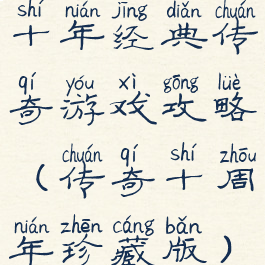 shí nián jīng diǎn chuán
十年经典传
qí yóu xì gōng lüè
奇游戏攻略
chuán qí shí zhōu
（传奇十周
nián zhēn cáng bǎn
年珍藏版）